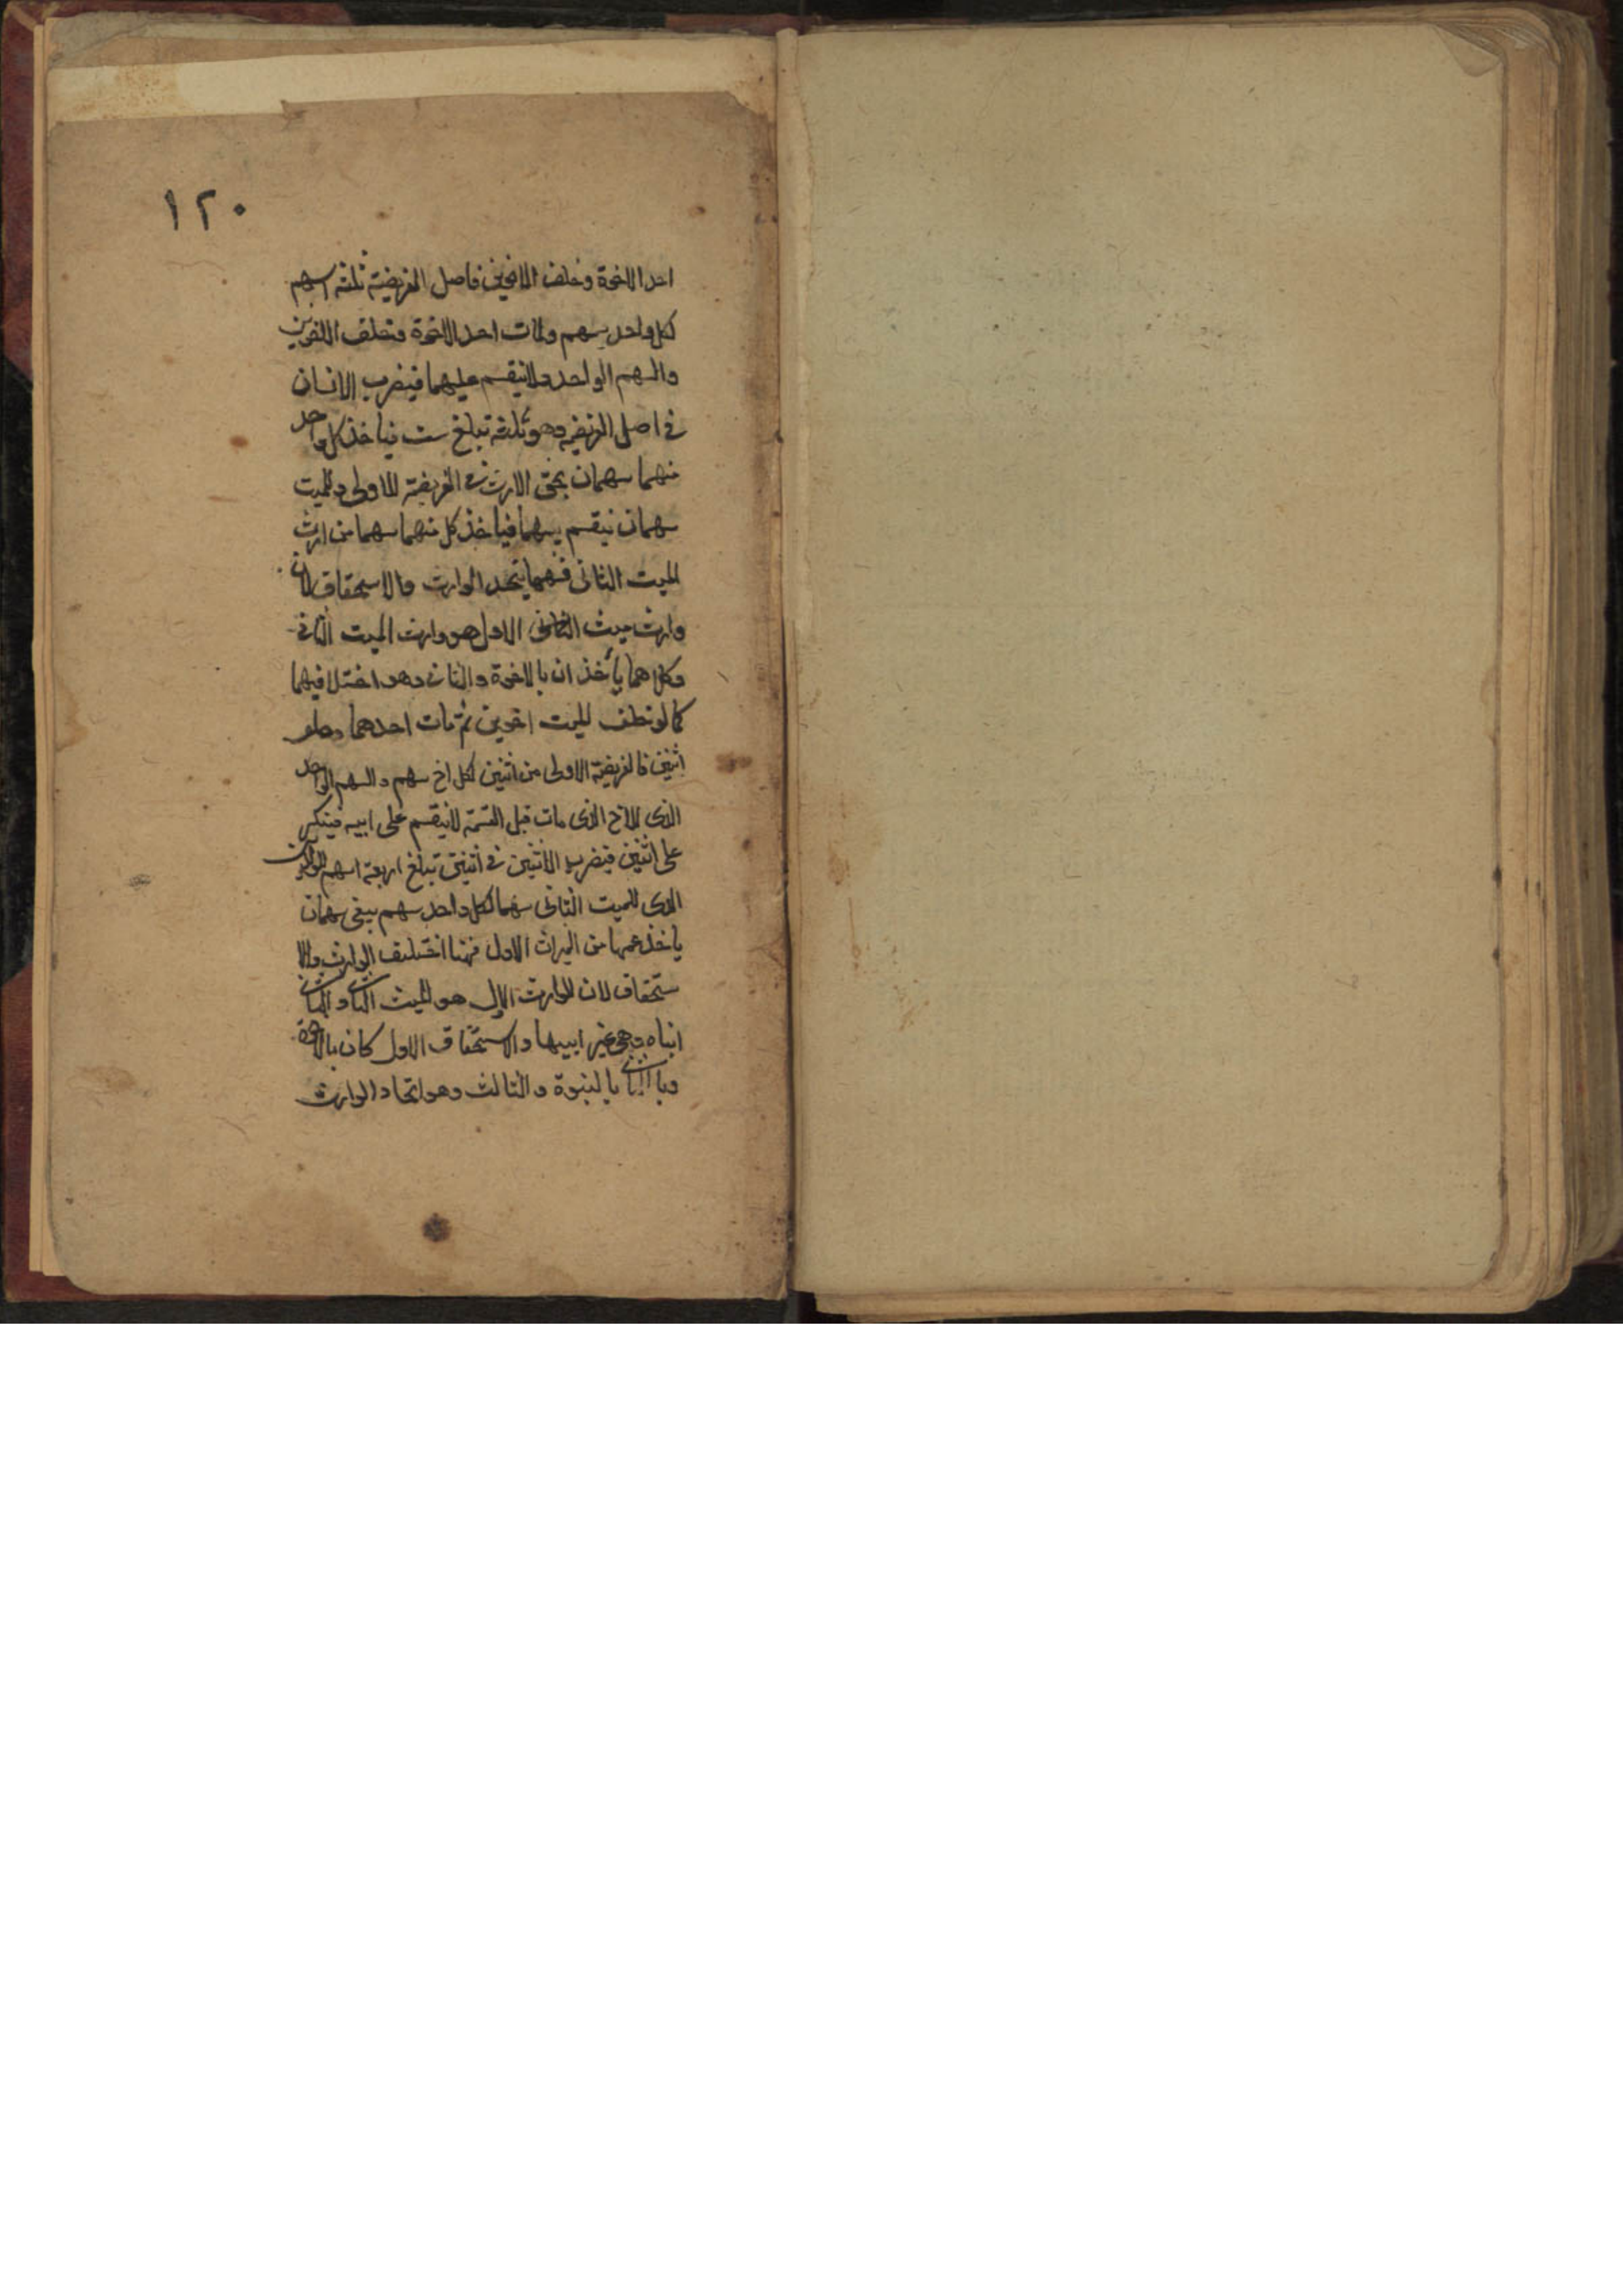 ١٢٠
احد الاخوة وخلف الاخوين فاصل الفريضة ثلثة اسهم
لكل واحد سهم ومات احد الاخوة وخلف الاخوين
والسهم الواحد لا ينقسم عليهما فيضرب الاثنان
في اصل الفريضة وهو ثلثة تبلغ ست فياخذ كل واحد
منهما سهمان بحق الارث في الفريضة الاولى وللميت
سهمان ينقسم بينهما فياخذ كل منهما سهما من ارث
الميت الثانى فههنا يتحد الوارث والاستحقاق لان
وارث ميت الاول هو وارث الميت الثاني
وكلاهما يأخذان بالاخوة والثانى وهو اختلافهما
كما لو خلف الميت اخوين ثم مات احدهما وخلف
اثنين فالفريضة الاولى من اثنين لكل اخ سهم والسهم الواحد
الذى للاخ الذى مات قبل القسمة لا ينقسم على ابنيه فينكسر
على اثنين فيضرب الاثنين في اثنين تبلغ اربعة اسهم
الذى للميت الثانى سهما لكل واحد سهم يبقى سهمان
ياخذ عمهما من الميراث الاول فهنا اختلف الوارث والا
ستحقاق لان الوارث الاول هو الميت الثانى والثانى
ابناه وهى غير ابيهما والاستحقاق الاول كان بالاخوة
وبالثانى بالبنوة والثالث وهو اتحاد الوارث